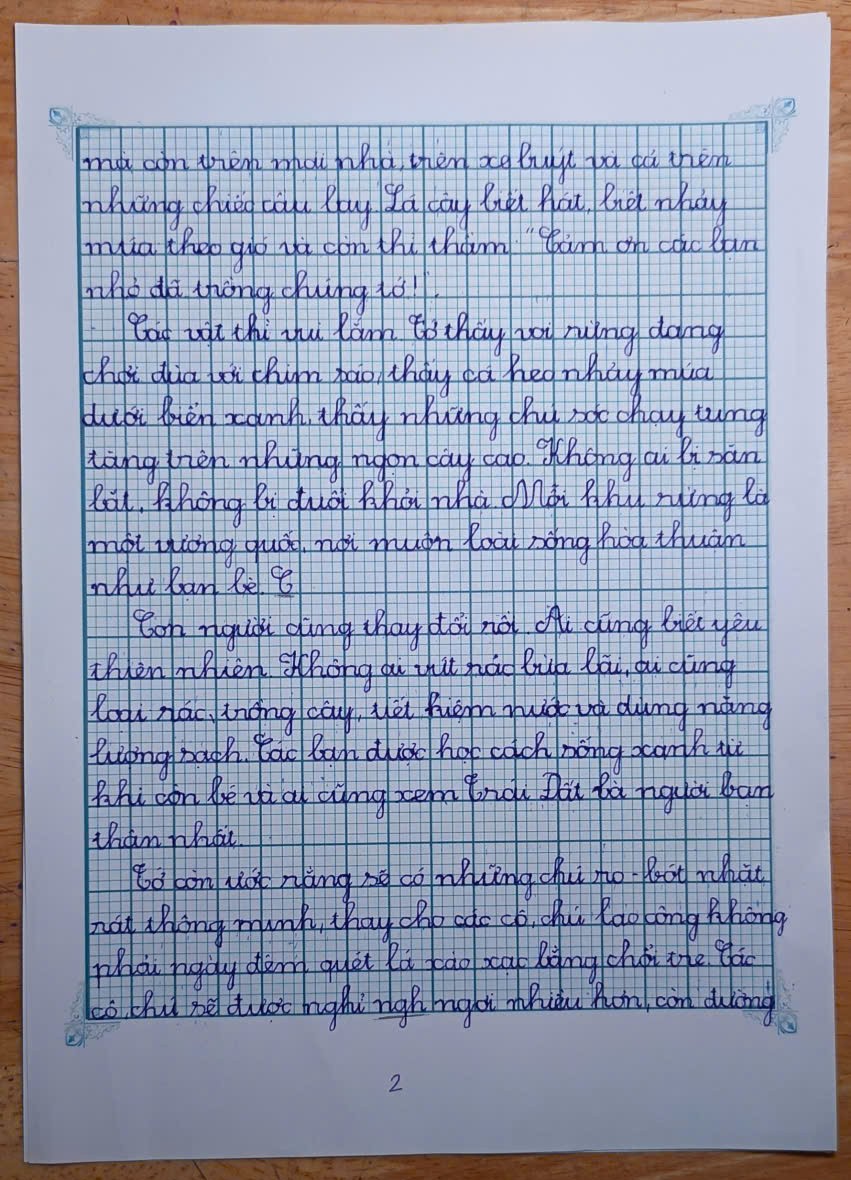 mà còn trên mái nhà, trên xe buýt và cả trên
những chiếc cầu lay. Lá cây biết hát, biết nhảy
múa theo gió và còn thì thầm "Cảm ơn các bạn
nhỏ đã trồng chúng tớ!".
Các vật thì vui lắm. Tớ thấy voi rừng đang
chơi đùa với chim sáo, thấy cá heo nhảy múa
dưới biển xanh, thấy những chú sóc chạy tung
tăng trên những ngọn cây cao. Không ai bị săn
bắt, không bị đuổi khỏi nhà. Mỗi khu rừng là
một vương quốc, nơi muôn loài sống hòa thuận
như bạn bè. C
Con người cũng thay đổi rồi. Ai cũng biết yêu
thiên nhiên. Không ai vứt rác bừa bãi, ai cũng
loại rác, trồng cây, tiết kiệm nước và dùng năng
lượng sạch. Các bạn được học cách sống xanh từ
khi còn bé và ai cũng xem Trái Đất là người bạn
thân nhất.
Tớ còn ước rằng sẽ có những chú rô-bốt nhặt
rát thông minh, thay cho các cô, chú lao công không
phải ngày đêm quét lá xào xạc bằng chổi tre. Các
cô, chú sẽ được nghỉ ngh ngơi nhiều hơn, còn đường
2